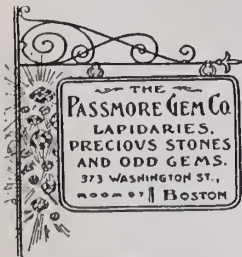 THE
PASSMORE GEM CO.
LAPIDARIES.
PRECIOUS STONES
AND ODD GEMS.
373 WASHINGTON ST.,
ROOM BOSTON